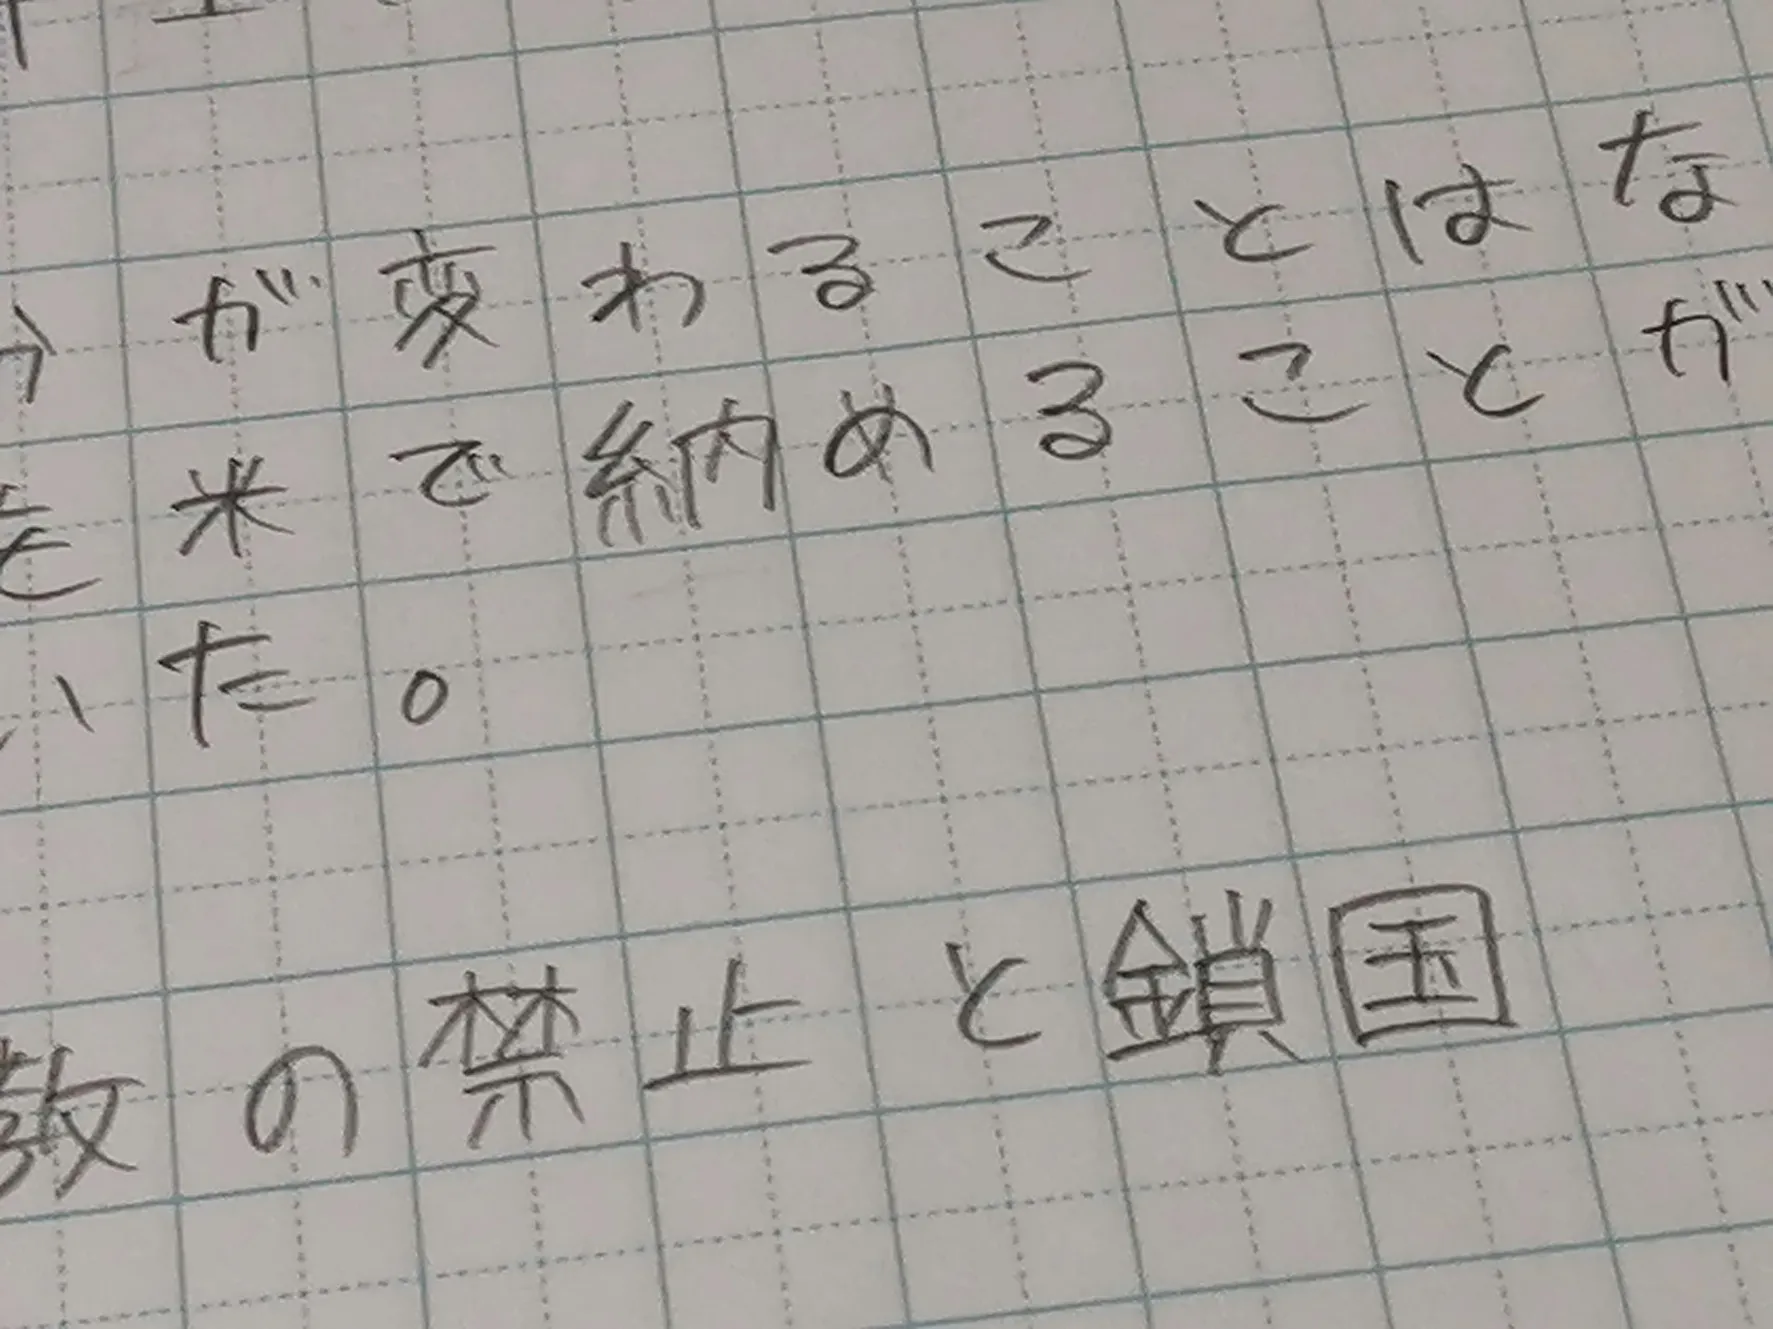 が変わることはな
を米で納めることが
いた。
教の禁止と鎖国